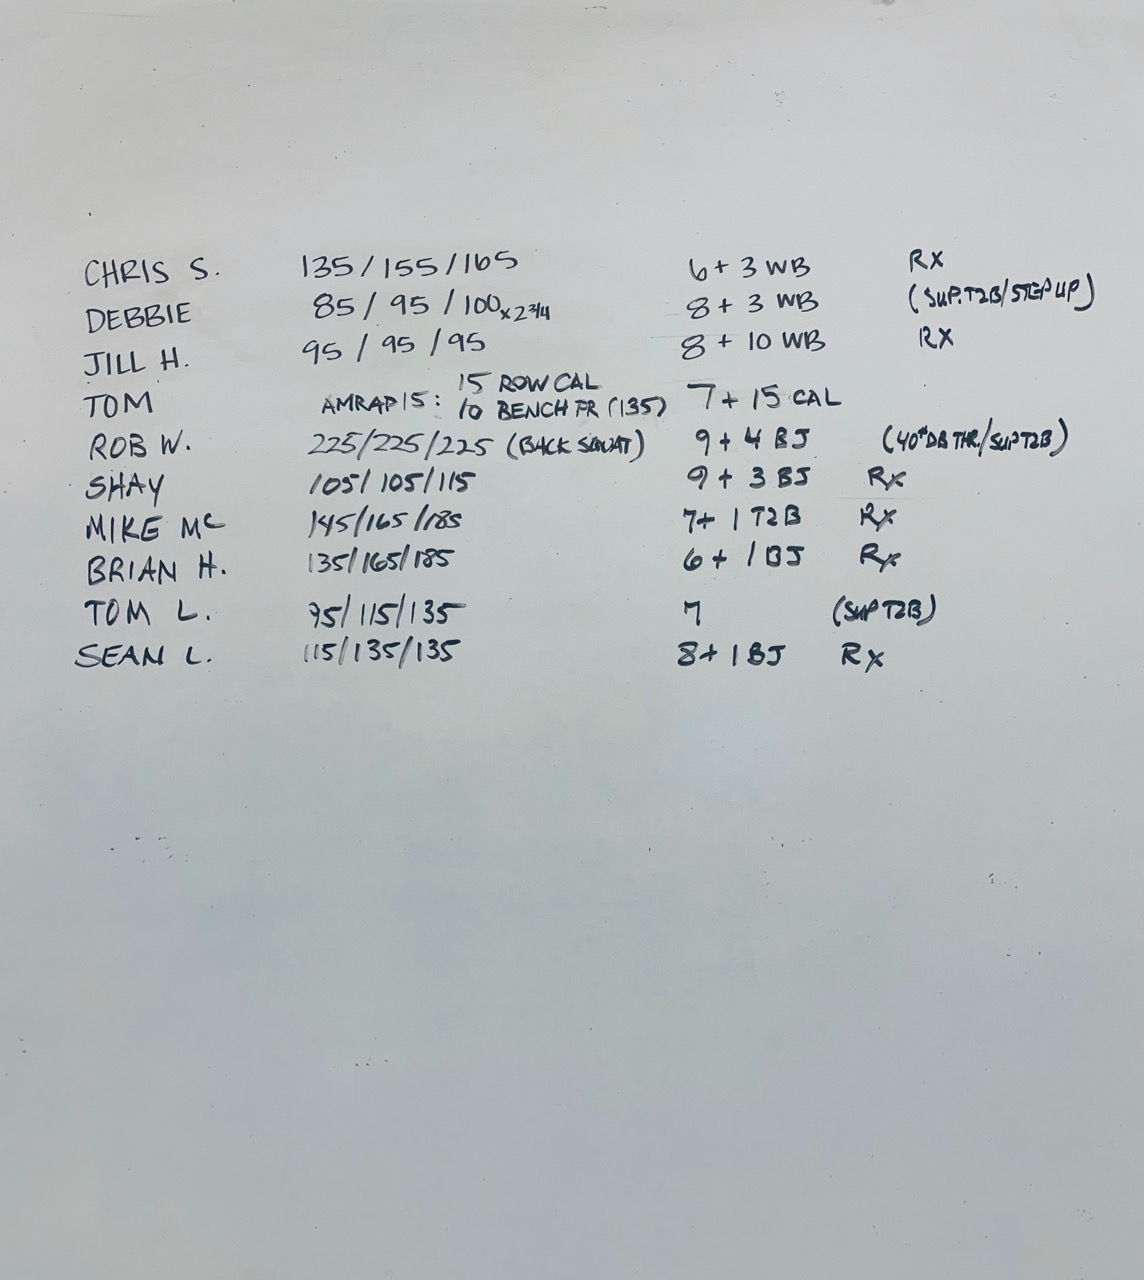 CHRIS S. 135/155/165 6+3 WB RX
DEBBIE 85/95/100x2 3/4 8+3 WB (SUP.T2B/STEP UP)
JILL H. 95/95/95 8+10 WB RX
TOM AMRAP 15: 15 ROW CAL 7+15 CAL
10 BENCH PR (135)
ROB W. 225/225/225 (BACK SQUAT) 9+4 BJ (40# DB THR./SUP T2B)
SHAY 105/105/115 9+3 BJ Rx
MIKE Mc 145/165/185 7+1 T2B Rx
BRIAN H. 135/165/185 6+1 BJ Rx
TOM L. 95/115/135 7 (SUP T2B)
SEAN L. 115/135/135 8+1 BJ Rx